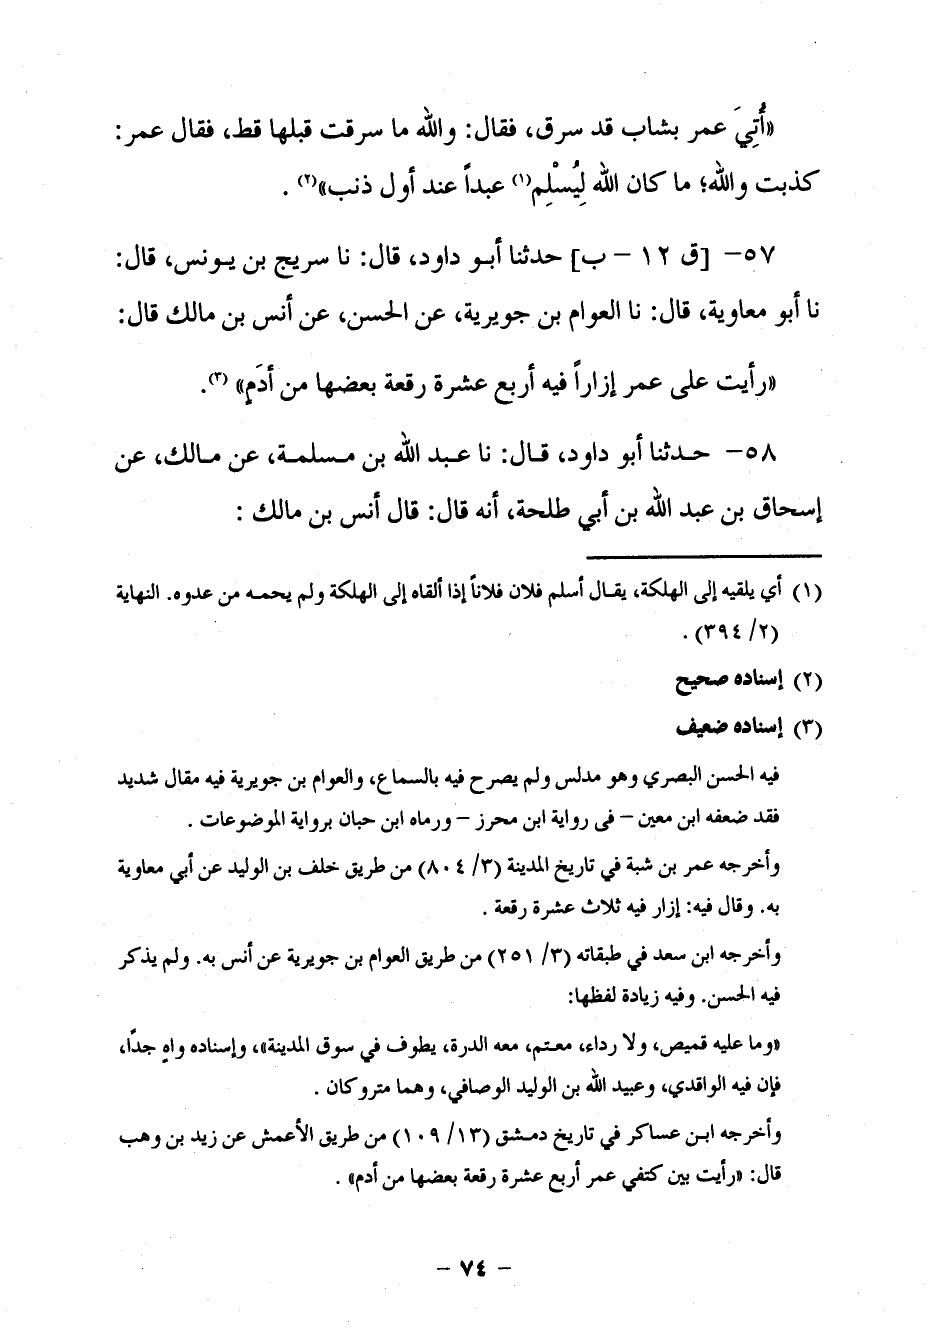 «أُتِيَ عمر بشاب قد سرق، فقال: والله ما سرقت قبلها قط، فقال عمر:
كذبت والله؛ ما كان الله لِيُسْلِم(١) عبداً عند أول ذنب»(٢) .
٥٧- [ق ١٢ - ب] حدثنا أبو داود، قال: نا سريج بن يونس، قال:
نا أبو معاوية، قال: نا العوام بن جويرية، عن الحسن، عن أنس بن مالك قال:
«رأيت على عمر إزاراً فيه أربع عشرة رقعة بعضها من أدَمٍ» (٣).
٥٨- حدثنا أبو داود، قال: نا عبد الله بن مسلمة، عن مالك، عن
إسحاق بن عبد الله بن أبي طلحة، أنه قال: قال أنس بن مالك :
(١) أي يلقيه إلى الهلكة، يقال أسلم فلان فلاناً إذا ألقاه إلى الهلكة ولم يحمه من عدوه. النهاية
(٢/ ٣٩٤) .
(٢) إسناده صحيح
(٣) إسناده ضعيف
فيه الحسن البصري وهو مدلس ولم يصرح فيه بالسماع، والعوام بن جويرية فيه مقال شديد
فقد ضعفه ابن معين - فى رواية ابن محرز - ورماه ابن حبان برواية الموضوعات .
وأخرجه عمر بن شبة في تاريخ المدينة (٣/ ٨٠٤) من طريق خلف بن الوليد عن أبي معاوية
به. وقال فيه: إزار فيه ثلاث عشرة رقعة .
وأخرجه ابن سعد في طبقاته (٣/ ٢٥١) من طريق العوام بن جويرية عن أنس به. ولم يذكر
فيه الحسن. وفيه زيادة لفظها:
«وما عليه قميص، ولا رداء، معتم، معه الدرة، يطوف في سوق المدينة»، وإسناده واهٍ جدًا،
فإن فيه الواقدي، وعبيد الله بن الوليد الوصافي، وهما متروكان .
وأخرجه ابن عساكر في تاريخ دمشق (١٣/ ١٠٩) من طريق الأعمش عن زيد بن وهب
قال: «رأيت بين كتفي عمر أربع عشرة رقعة بعضها من أدم» .
- ٧٤ -